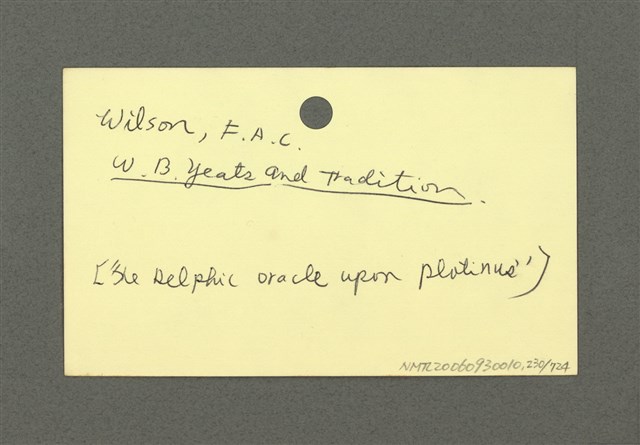 Wilson, F.A.C.
W.B. Yeats and Tradition.
["The Delphic oracle upon Plotinus")
NMTL20060930010, 230/724